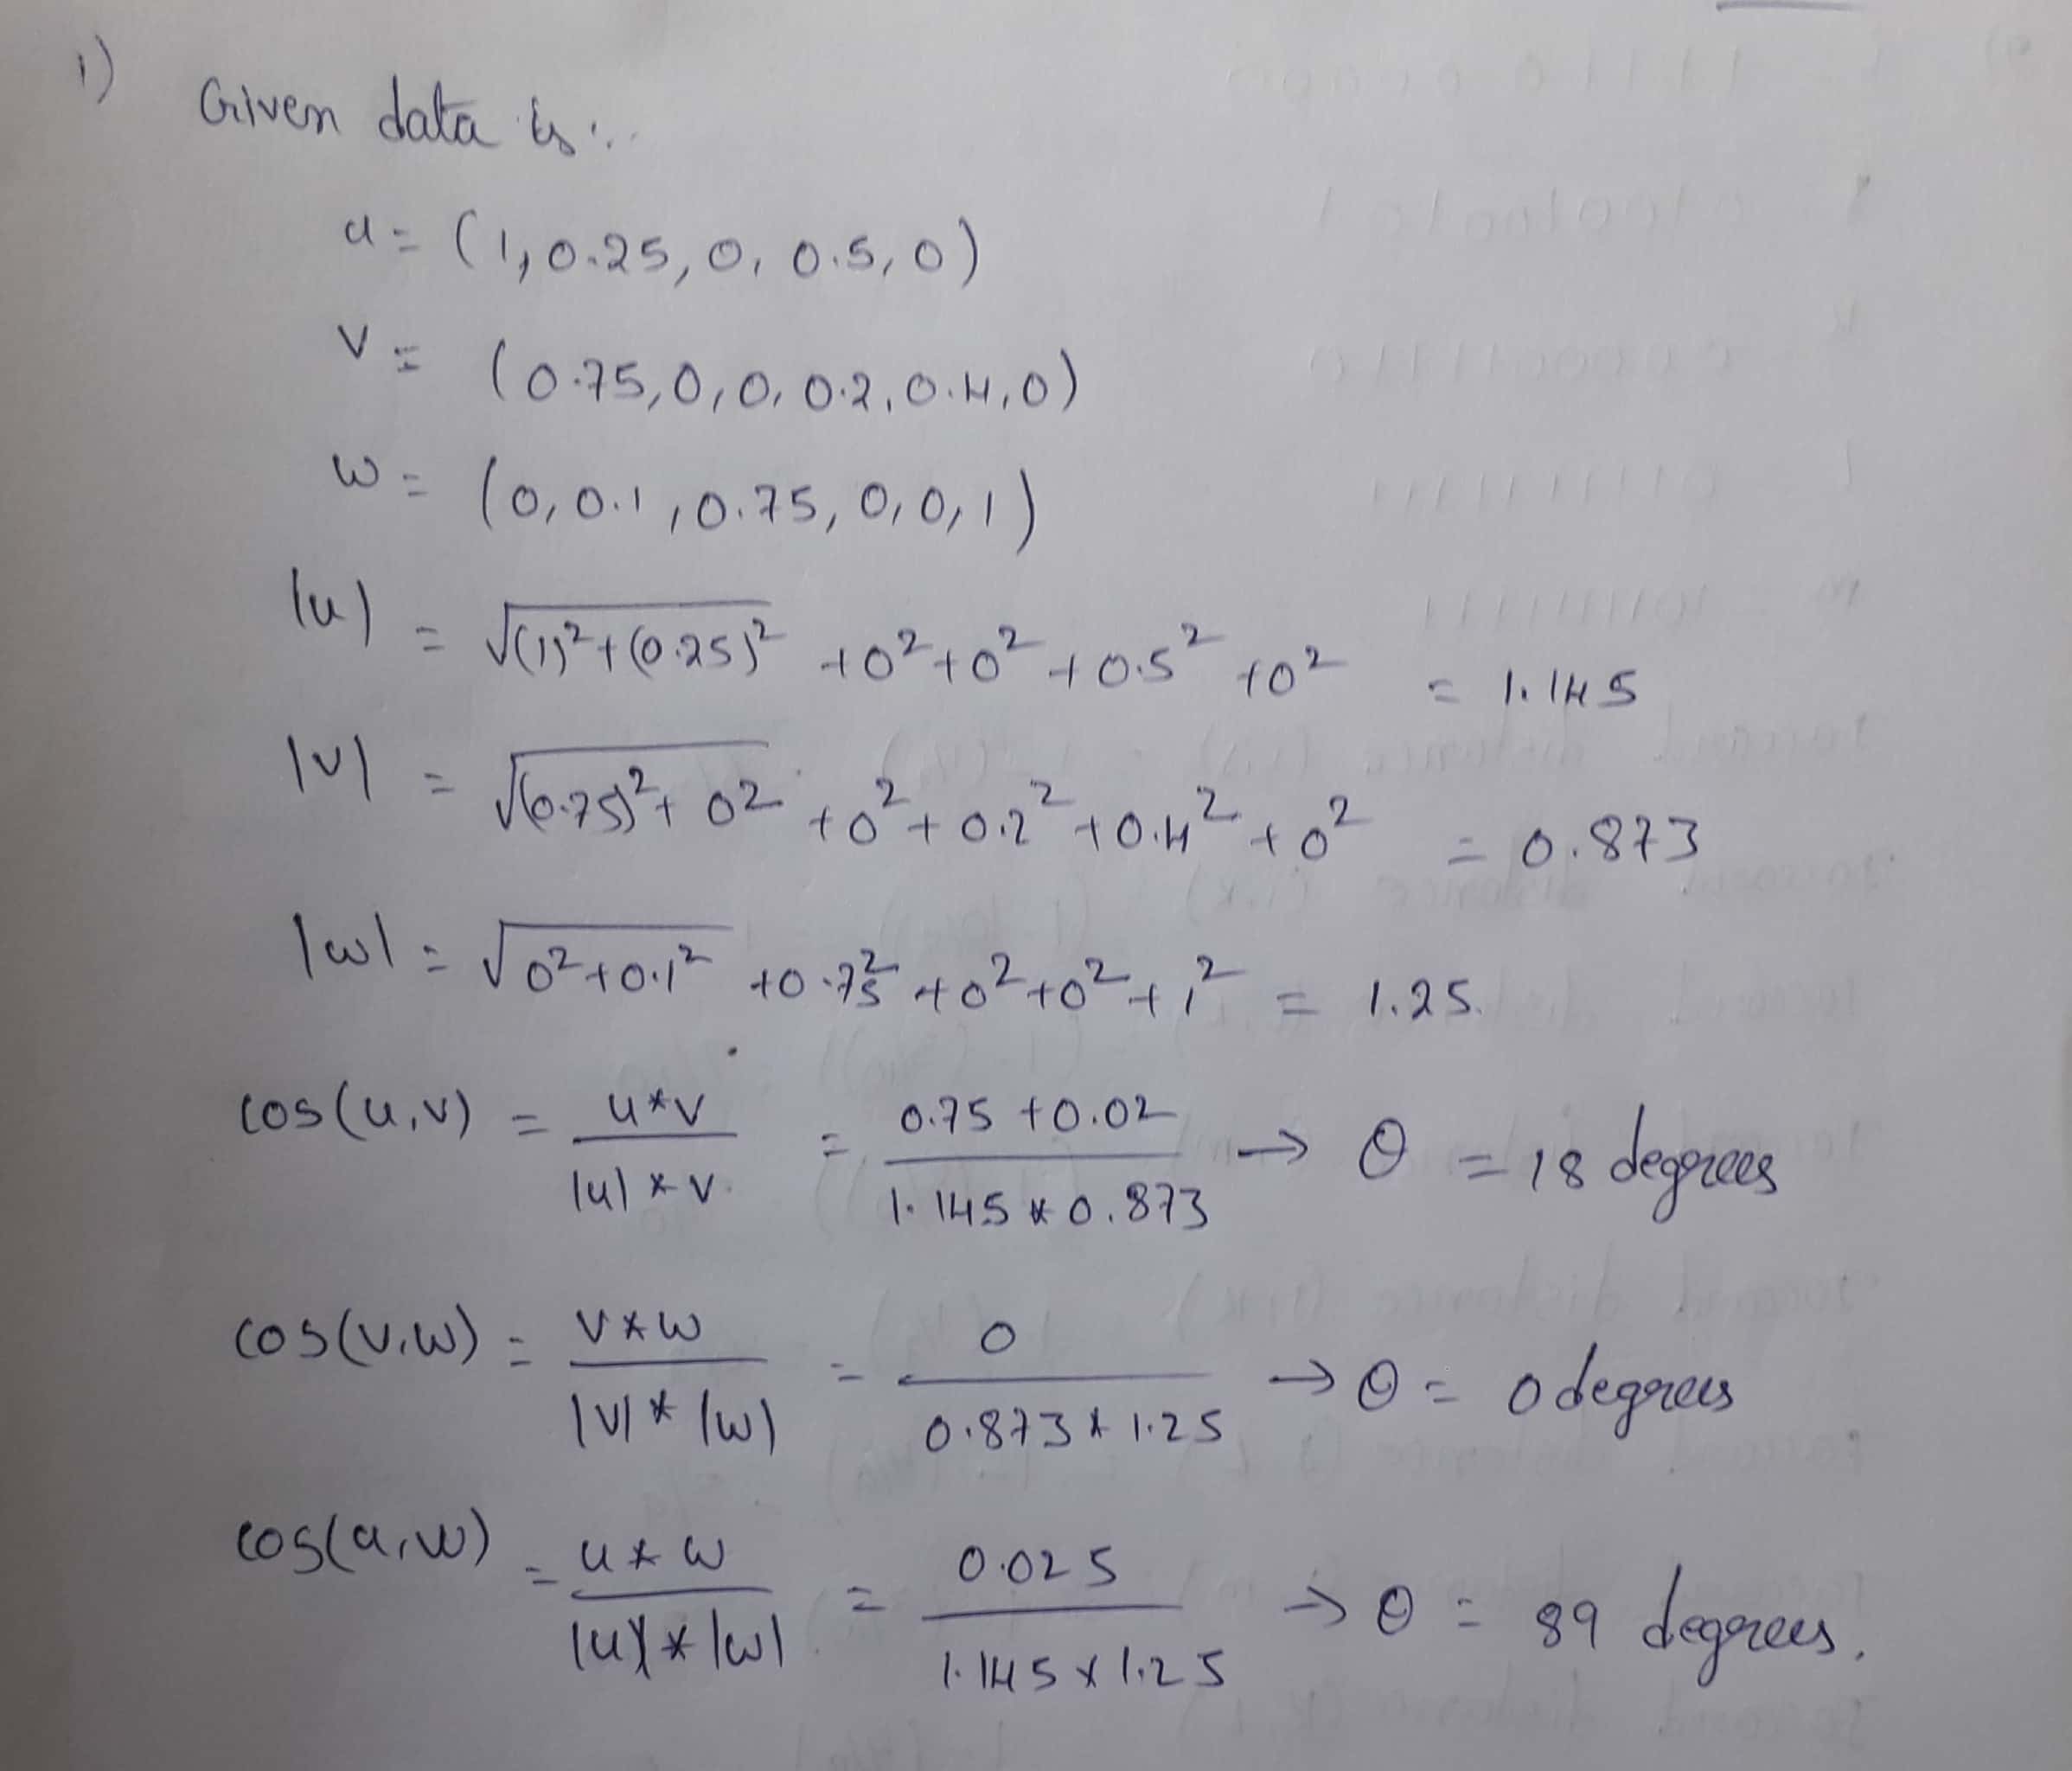 1)
Given data is :.
u = (1, 0.25, 0, 0.5, 0)
v = (0.75, 0, 0, 0.2, 0.4, 0)
w = (0, 0.1, 0.75, 0, 0, 1)
|u| = √(1)²+(0.25)² +0²+0²+0.5²+0² = 1.145
|v| = √(0.75)²+0² +0²+0.2²+0.4²+0² = 0.873
|w| = √0²+0.1² +0.75²+0²+0²+1² = 1.25.
cos(u,v) = u*v / |u|*v = 0.75+0.02 / 1.145*0.873 → θ = 18 degrees
cos(v,w) = v*w / |v|*|w| = 0 / 0.873*1.25 → θ = 0 degrees
cos(u,w) = u*w / |u|*|w| = 0.025 / 1.145*1.25 → θ = 89 degrees.